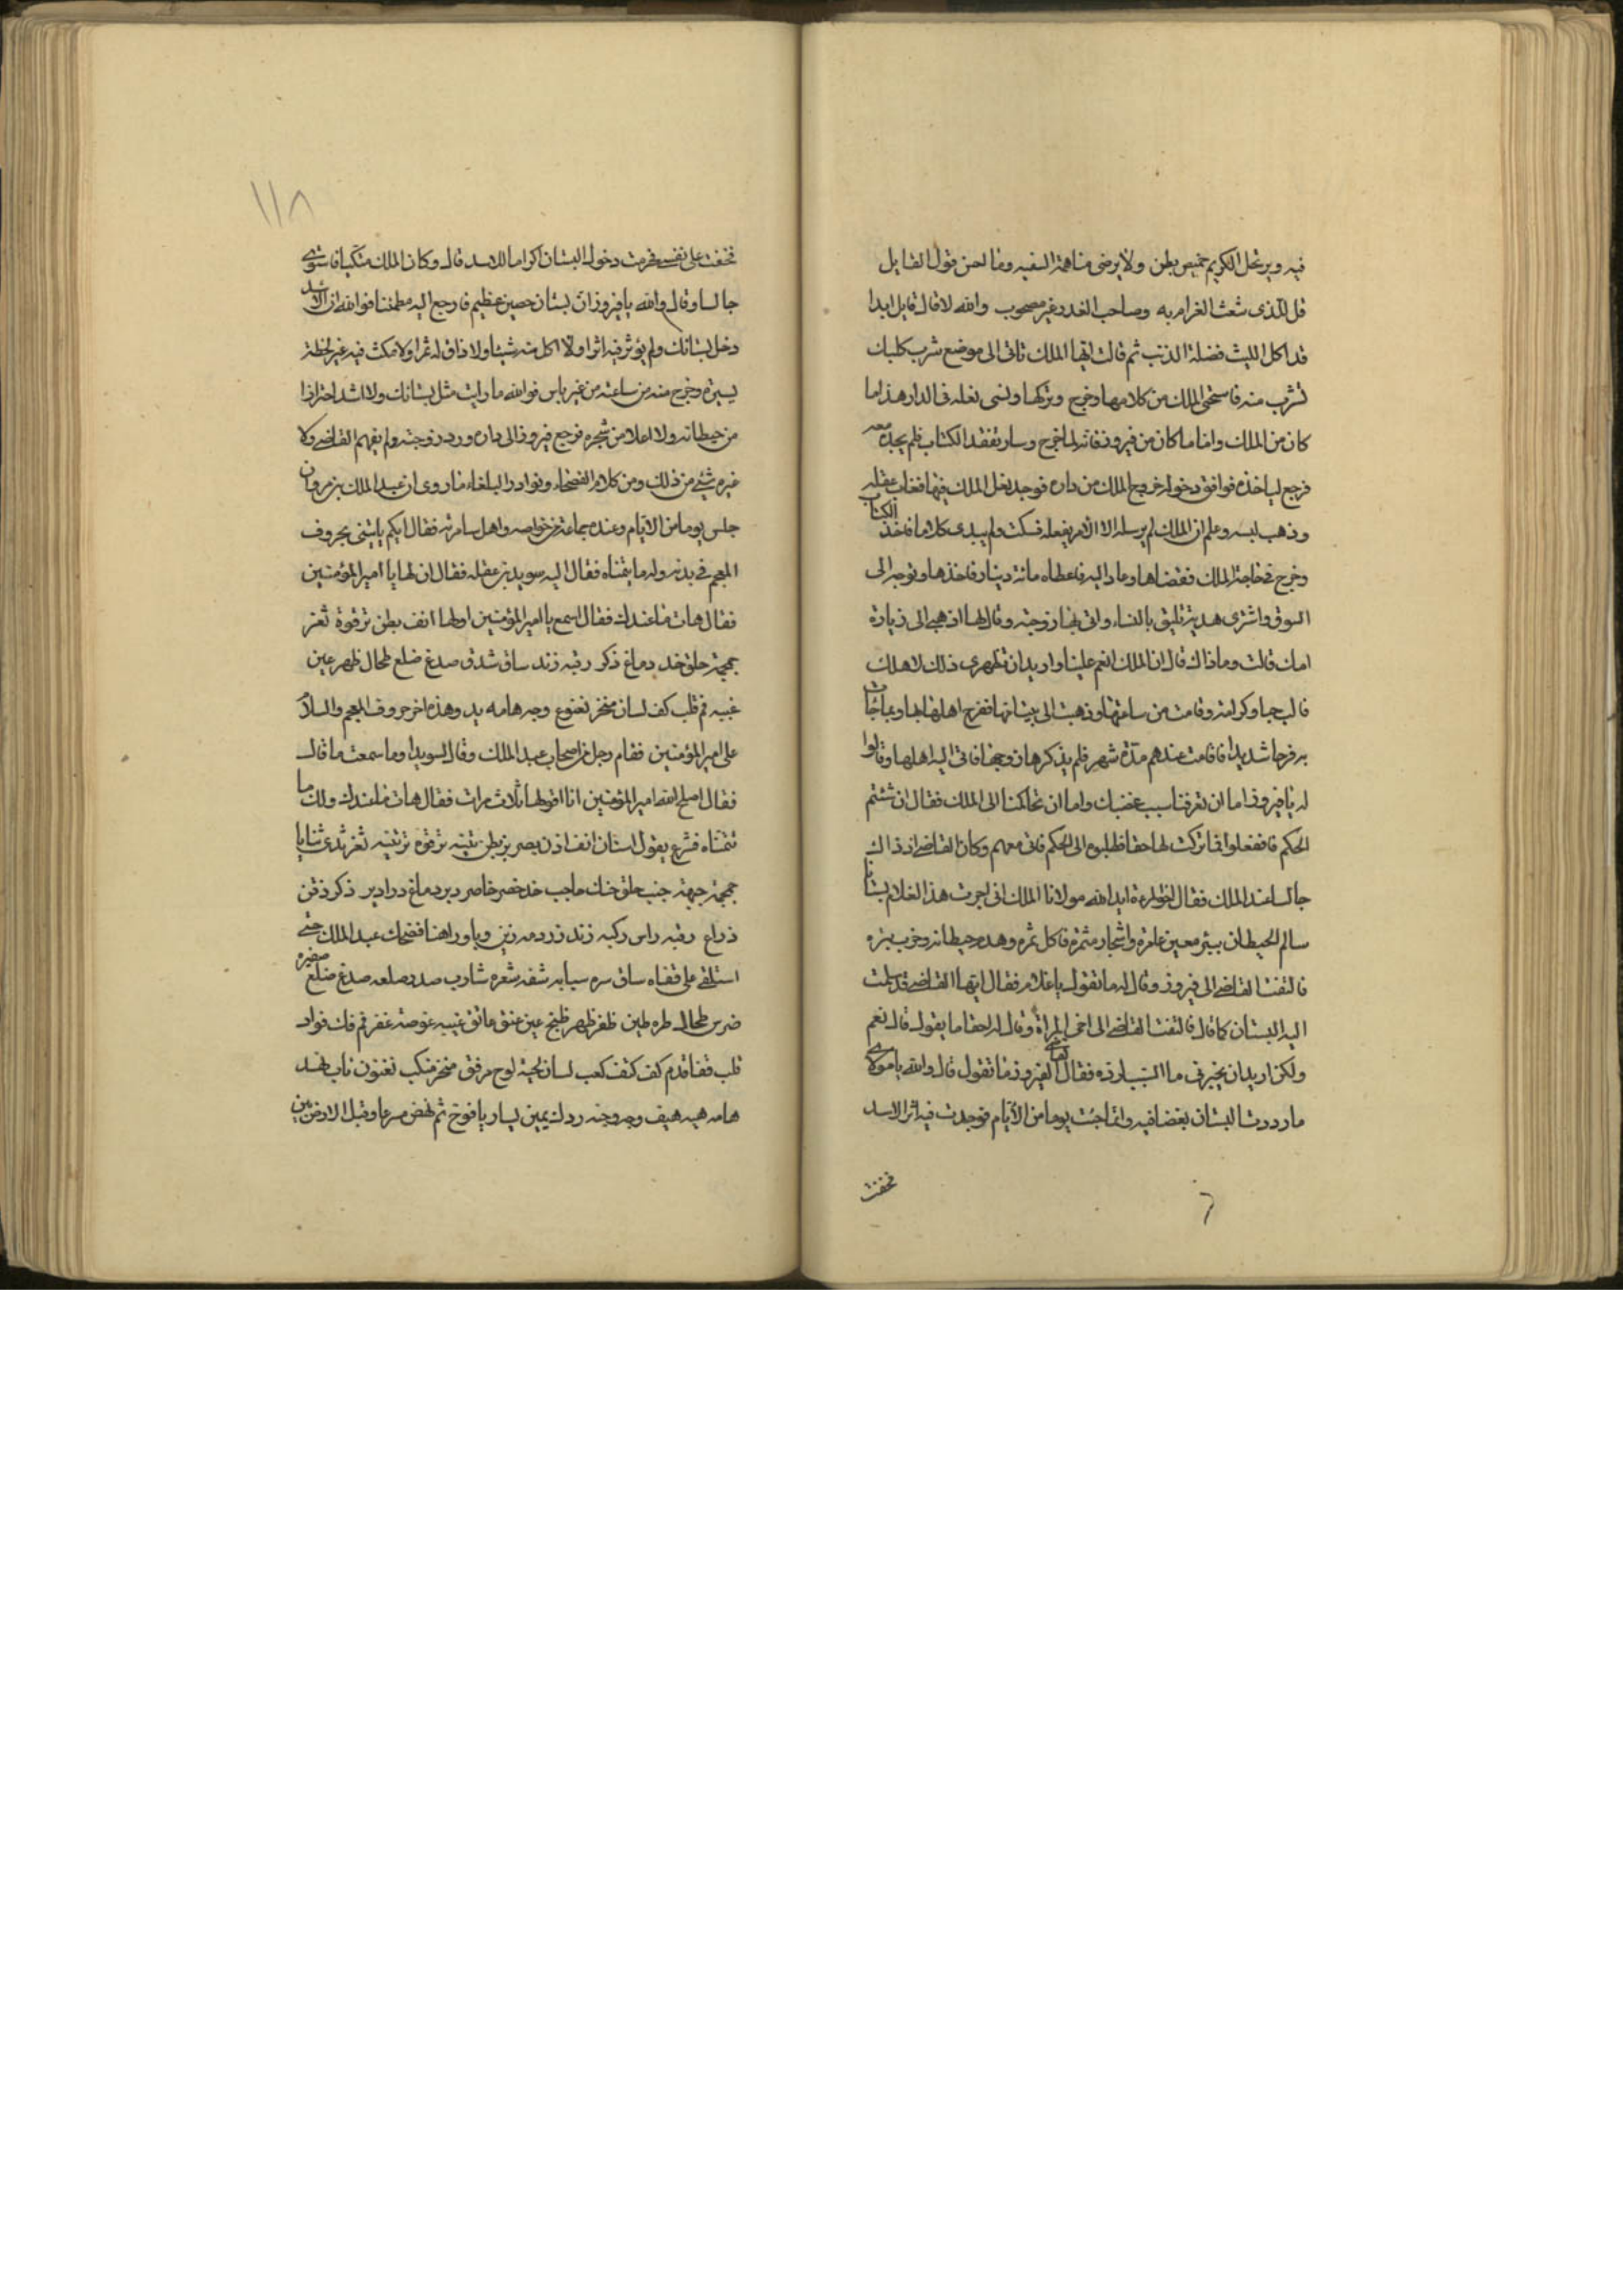 فيه ويرتحل الكريم خميص بطن ولا يرضى مناهمة السفيه وما احسن قول القايل
قل للذى شغه الغرام به وصاحب الغدر غير مصحوب والله لا قال قايل ابدا
قد اكل الليث فضلة الذئب ثم قالت ايها الملك تاتى الى موضع شرب كلبك
تشرب منه فاستحى الملك من كلامها وخرج وتركها ونسى نعله فى الدار هذا ما
كان من الملك واما ما كان من فيروز فانه لما خرج وسار تفقد الكتاب فلم يجده معه
فرجع لياخذه فوافق دخوله خروج الملك من داره فوجد نعل الملك فيها فغاب عقله
وذهب لبه وعلم ان الملك لم يرسله الا لامر يفعله فسكت ولم يبدى كلاما فاخذ الكتاب
وخرج فى حاجة الملك فقضاها وعاد اليه فاعطاه مائة دينار فاخذها وتوجه الى
السوق واشترى هدية تليق بالنساء واتى بها زوجته وقال لها اذهبى الى زيارة
امك قالت وما ذاك قال ان الملك انعم علينا واريد ان تظهرى ذلك لاهلك
قالت حبا وكرامة وقامت من ساعتها وذهبت الى بيت ابيها ففرح اهلها بها وبما جات
به فرحا شديدا فاقامت عندهم مدة شهر فلم يذكرها زوجها فاتى اليه اهلها وقالوا
له يا فيروز اما ان تعرفنا سبب غضبك واما ان تحاكمنا الى الملك فقال ان شئتم
الحكم فافعلوا فما تركت لها حقا فطلبوه الى الحكم فاتى معهم وكان القاضى اذ ذاك
جالسا عند الملك فقال اخو المرءة ايد الله مولانا الملك انى اجرت هذا الغلام بستانا
سالم الحيطان ببئر معين عامرة واشجار مثمرة فاكل ثمره وهدم حيطانه وخرب بئره
فالتفت القاضى الى فيروز وقال له ما تقول يا غلام فقال ايها القاضى قد سلمت
اليه البستان كما قال فالتفت القاضى الى اخى المراة وقال له احقا ما يقول قال نعم
ولكن اريد ان يخبرنى ما السبب لرده فقال القاضى لفيروز ما تقول قال والله يا مولاى
ما رددت البستان بغضا فيه وانما جئت يوما من الايام فوجدت فيه اثر الاسد
فخفت
١١٨
فخفت على نفسى فحرمت دخول البستان اكراما للاسد قال وكان الملك متكيا فاستوى
جالسا وقال والله يا فيروز ان بستانك حصين عظيم فارجع اليه مطمئنا فوالله ان الاسد
دخل بستانك ولم يؤثر فيه اثرا ولا اكل منه شيئا ولا ذاق له ثمرا ولا مكث فيه غير لحظة
يسيرة وخرج منه من ساعته من غير باس فوالله ما رايت مثل بستانك ولا اشد احترازا
من حيطانه ولا اعلا من شجره فرجع فيروز الى داره ورد زوجته ولم يفهم القاضى ولا
غيره شئ من ذلك ومن كلام الفصحاء ونوادر البلغاء ما روى ان عبد الملك بن مروان
جلس يوما من الايام وعنده جماعة من خواصه واهل سامرته فقال ايكم ياتينى بحروف
المعجم فى بدنه وله ما يتمناه فقال اليه سويد بن عقله فقال ان لها يا امير المؤمنين
فقال هات ما عندك فقال اسمع يا امير المؤمنين اولها انف بطن ترقوة ثغر
جمجمة حلق خد دماغ ذكر رقبه زند ساق شدق صدغ ضلع طحال ظهر عين
غببه فم قلب كف لسان منخر نغنوغ وجه هامه يد وهذه اخر حروف المعجم والسلام
على امير المؤمنين فقام رجل من اصحاب عبد الملك وقال لسويد وما سمعت ما قال
فقال اصلح الله امير المؤمنين انا اقولها ثلاث مرات فقال هات ما عندك ولك ما
تتمناه فشرع يقول اسنان انف اذن بصر بطن ترقوة ثغر ثدى ثنايا
جمجمة جبهة جنب حلق حنك حاجب خد خصر خاصر دبر دماغ ذكر ذقن
ذراع رقبه راس ركبه زند فضحك عبد الملك حتى
استلقى على قفاه ساق سره سبابه شفه شعره شارب صدر صلعه صدغ ضلع ضفيره
ضرس طحال طره ظفر ظهر عين عنق عاتق غببه فم فك فواد
قلب قفا قدم كف كتف كعب لسان لحية لوح مرفق منخر منكب ناب نهد
هامه هيف وجه وجنه يمين يسار يافوخ ثم نهض مسرعا وقبل الارض بين